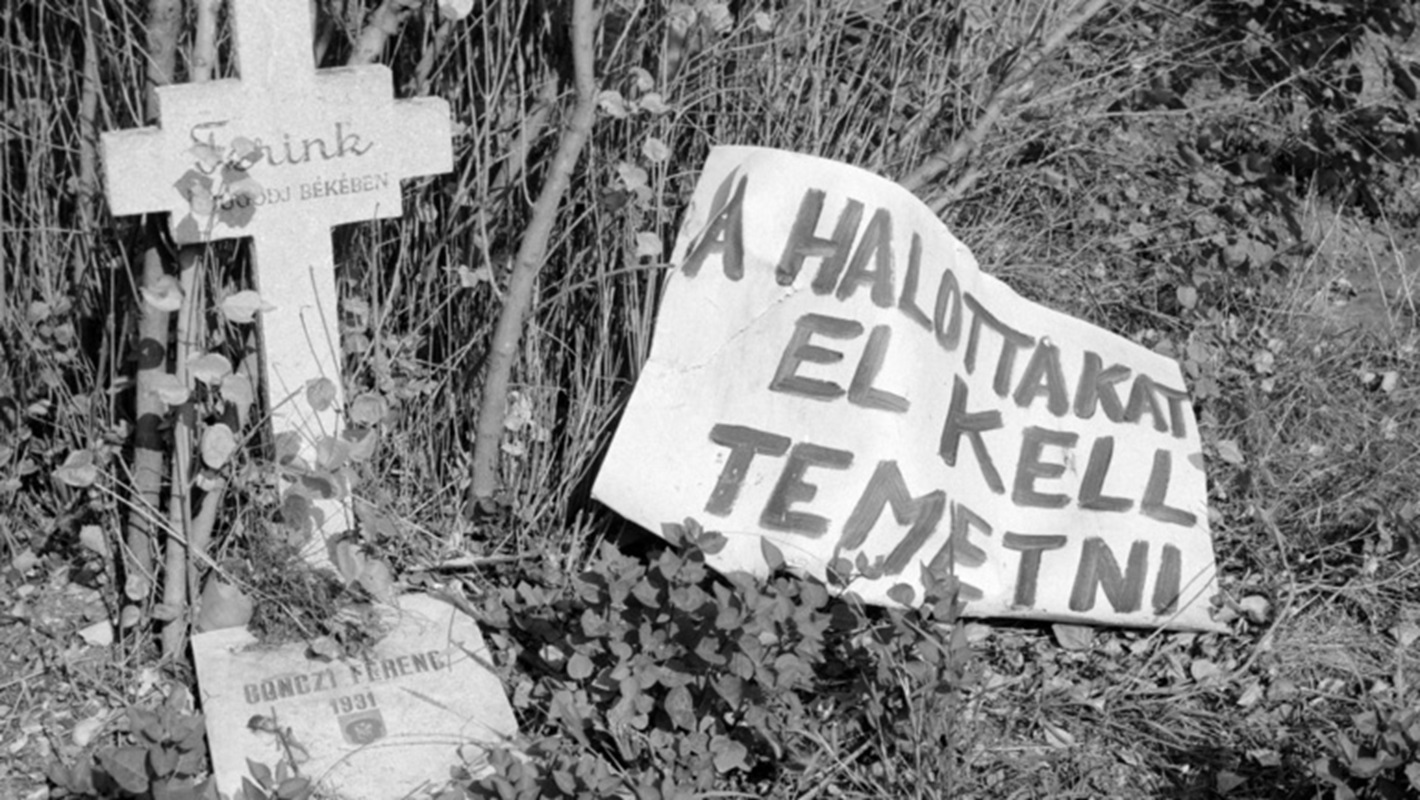 Ferink
NYUGODJ BÉKÉBEN
A HALOTTAKAT
EL KELL
TEMETNI
BONCZI FERENC
1931